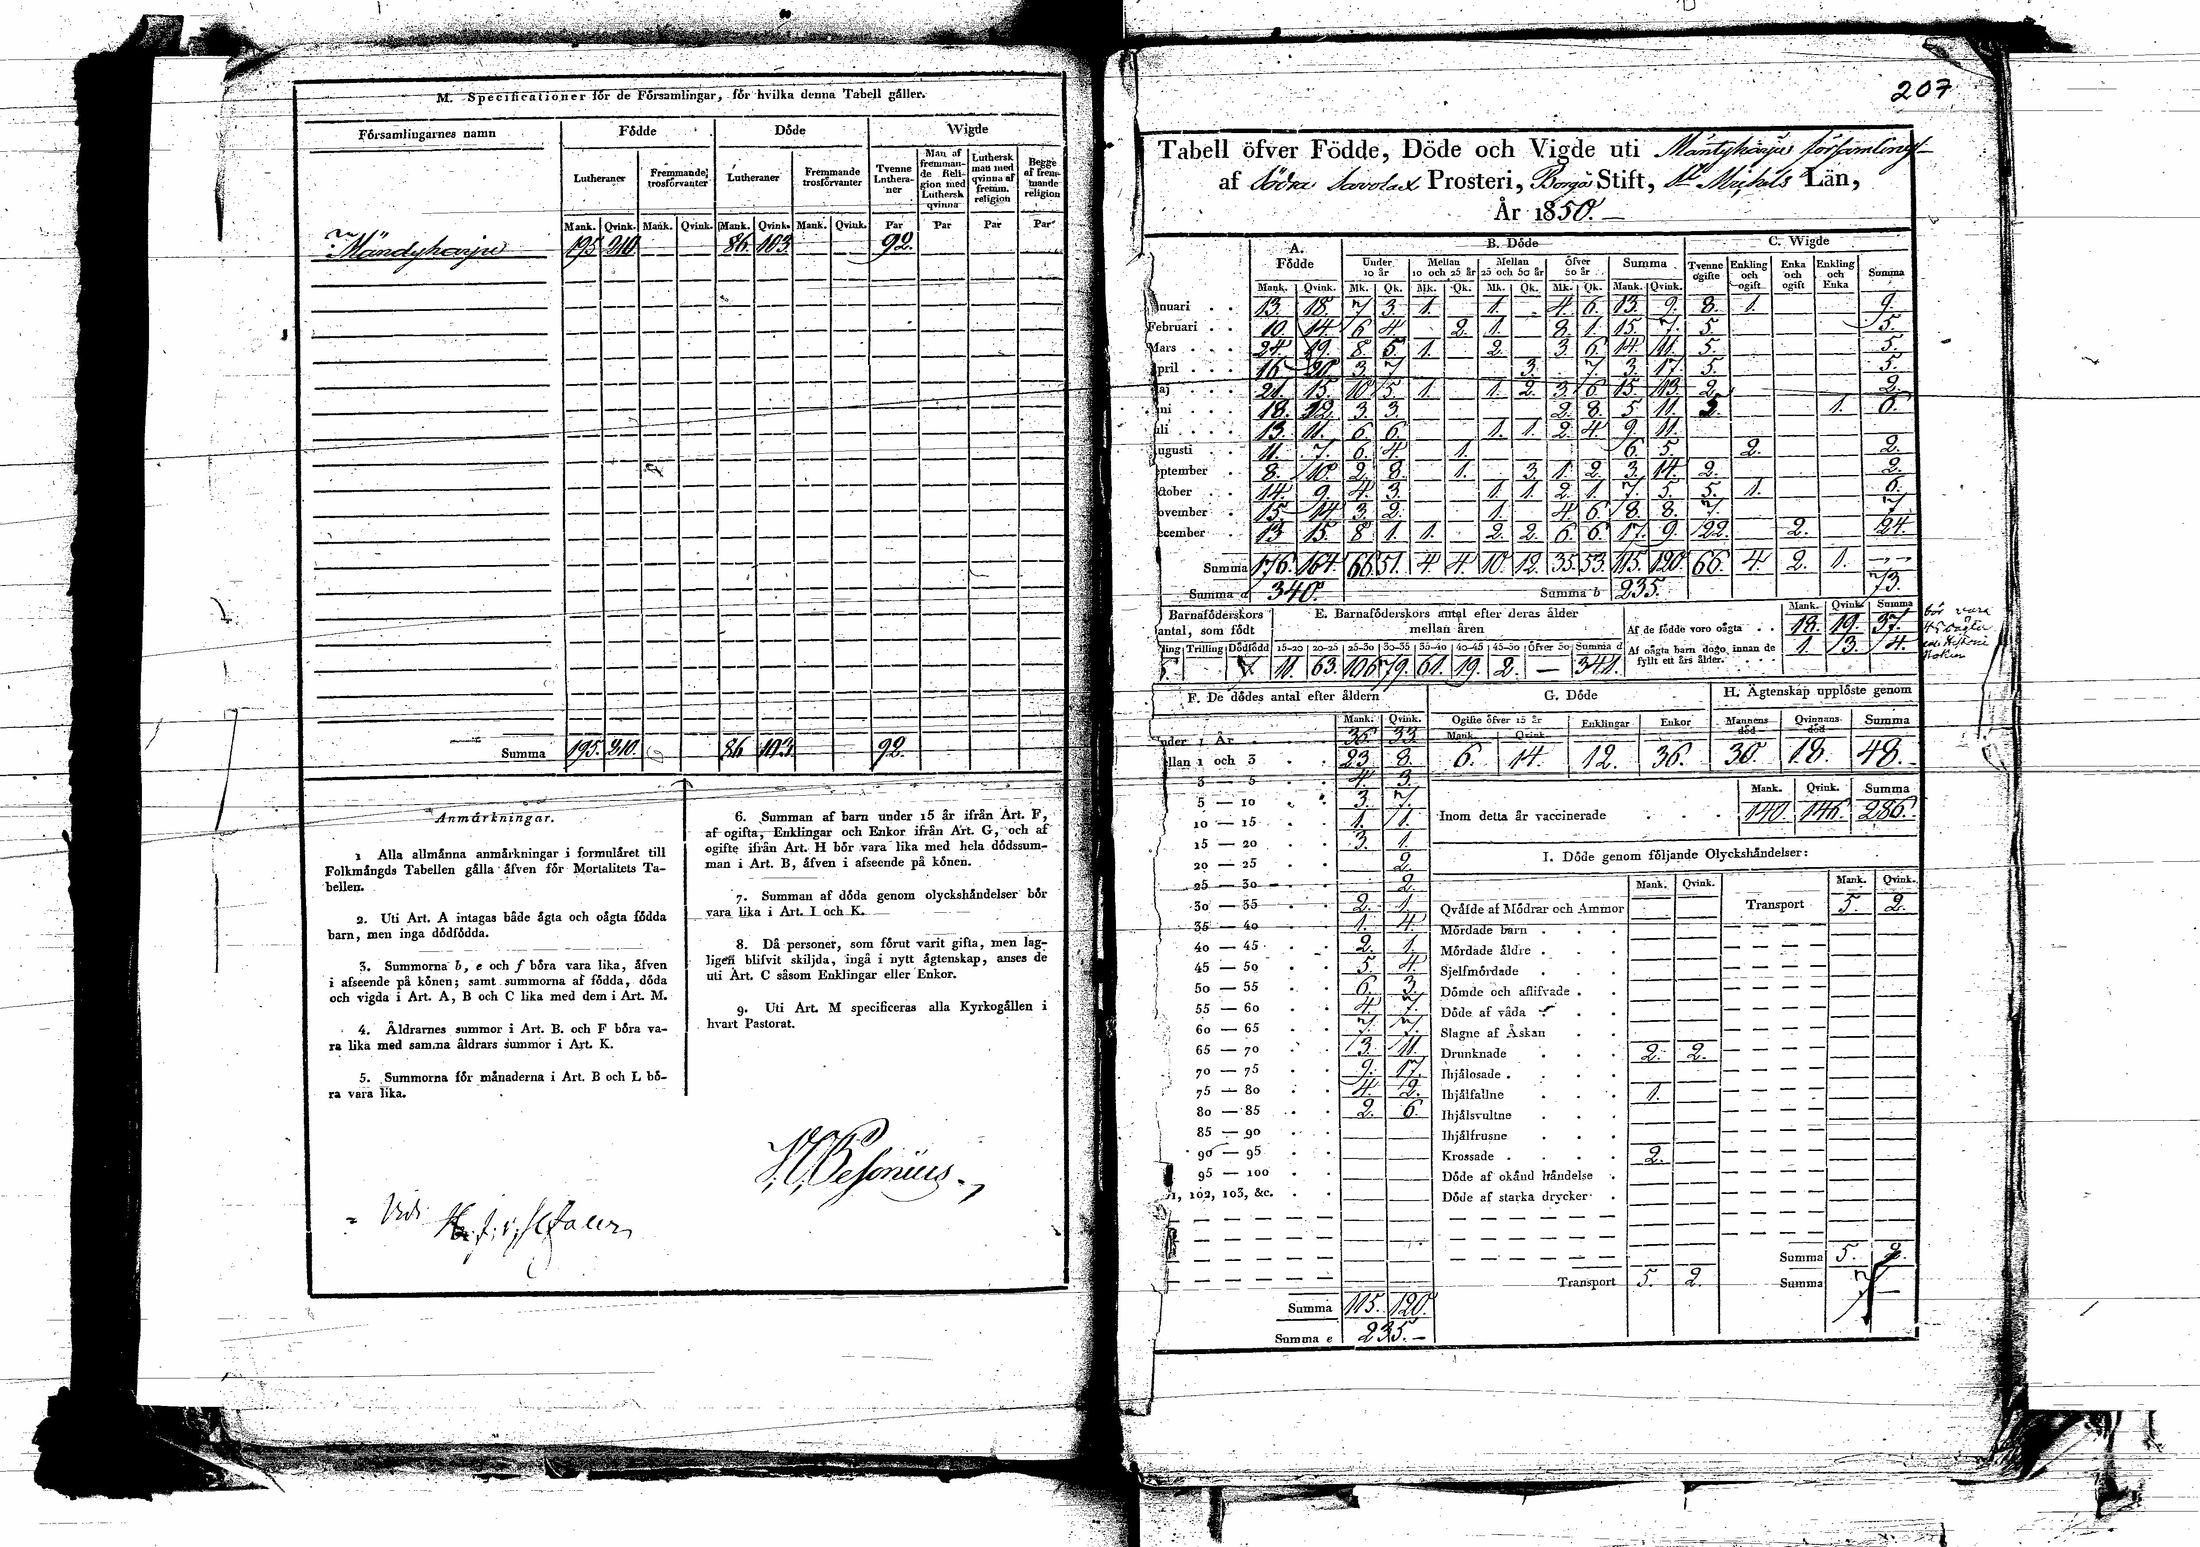 M. Specificationer för de Församlingar, för hvilka denna Tabell gäller.
Församlingarnes namn
Födde
Döde
Wigde
Lutheraner
Fremmande trosförvanter
Lutheraner
Fremmande trosförvanter
Tvenne Lutheraner
Man af fremmande Religion med Luthersk qvinna
Luthersk man med qvinna af fremm. religion
Begge af fremmande religion
Mank. Qvink. Mank. Qvink. Mank. Qvink. Mank. Qvink. Par Par Par Par
Mändyharju 195 210 86 103 92.
Summa 195. 210. 86 103 92.
Anmärkningar.
1 Alla allmänna anmärkningar i formuläret till
Folkmängds Tabellen gälla äfven för Mortalitets Ta-
bellen.
2. Uti Art. A intagas både ägta och oägta födda
barn, men inga dödfödda.
3. Summorna b, e och f böra vara lika, äfven
i afseende på könen; samt summorna af födda, döda
och vigda i Art. A, B och C lika med dem i Art. M.
4. Åldrarnes summor i Art. B. och F böra va-
ra lika med samma åldrars summor i Art. K.
5. Summorna för månaderna i Art. B och L bö-
ra vara lika.
6. Summan af barn under 15 år ifrån Art. F,
af ogifta, Enklingar och Enkor ifrån Art. G, och af
ogifte ifrån Art. H bör vara lika med hela dödssum-
man i Art. B, äfven i afseende på könen.
7. Summan af döda genom olyckshändelser bör
vara lika i Art. I och K.
8. Då personer, som förut varit gifta, men lag-
ligen blifvit skiljda, ingå i nytt ägtenskap, anses de
uti Art. C såsom Enklingar eller Enkor.
9. Uti Art. M specificeras alla Kyrkogällen i
hvart Pastorat.
Vidi
207
Tabell öfver Födde, Döde och Vigde uti Mäntyharju församling
af Södra Savolax Prosteri, Borgå Stift, St Michels Län,
År 1850.
A. Födde
B. Döde
C. Wigde
Under 10 år
Mellan 10 och 25 år
Mellan 25 och 50 år
Öfver 50 år
Summa
Tvenne ogifte
Enkling och ogift
Enka och ogift
Enkling och Enka
Summa
Mank. Qvink. Mk. Qk. Mk. Qk. Mk. Qk. Mk. Qk. Mank. Qvink.
nuari 13. 18. 7 3. 1. 1. 4 6. 13. 9. 8. 1. 9.
Februari 10. 14. 6 4. 2. 1. 8. 1. 15. 7. 5. 5.
Mars 24. 19. 8. 5. 1. 2. 3. 6. 14. 11. 5. 5.
pril 16 20 3. 7. 3. 7. 3. 17. 5. 5.
aj 21. 15. 10 5. 1. 1. 2. 3. 6. 15. 13. 2. 2.
ni 18. 12. 3. 3. 2. 8. 5. 11. 5. 1. 6.
uli 13. 11. 6. 6. 1. 1. 2. 4. 9. 11.
ugusti 11. 7. 6. 4. 1. 6. 5. 2. 2.
ptember 8. 10. 2. 8. 1. 3. 1. 2. 3. 14. 2. 2.
ktober 14. 9. 4. 3. 1. 1. 2. 1. 7. 5. 5. 1. 6.
ovember 15. 14 3. 2. 1. 4. 6. 8. 8. 7. 7
ecember 13 15. 8. 1. 1. 2. 2. 6. 6. 17. 9. 22. 2. 24.
Summa 176. 164. 66 51. 4. 4. 10. 12. 35. 53. 115. 120. 66. 4. 2. 1.
Summa a 340. Summa b 235. 73.
Barnaföderskors
antal, som födt
ling Trilling Dödfödd
E. Barnaföderskors antal efter deras ålder
mellan åren
15–20 20–25 25–30 30–35 35–40 40–45 45–50 Öfver 50 Summa d
11. 63. 106 79. 61. 19. 2. — 341.
Mank. Qvink. Summa
Af de födde voro oägta 18. 19. 37.
Af oägta barn dogo innan de fyllt ett års ålder. 1. 3. 4.
bör vara
F. De dödes antal efter åldern
Mank. Qvink.
nder 1 År 35 33
llan 1 och 3 23 8.
3 — 5 4. 3.
5 — 10 3. 7.
10 — 15 1. 1.
15 — 20 3. 1.
20 — 25 2.
25 — 30 2.
30 — 35 2. 1.
35 — 40 1. 4.
40 — 45 2. 1.
45 — 50 5. 4.
50 — 55 6. 3.
55 — 60 4. 7.
60 — 65 7. 7.
65 — 70 3. 11.
70 — 75 9. 17.
75 — 80 4. 2.
80 — 85 2. 6.
85 — 90
90 — 95
95 — 100
1, 102, 103, &c.
Summa 115. 120.
Summa e 235.
G. Döde
Ogifte öfver 15 år
Enklingar Enkor
Mank. Qvink
6. 14. 12. 36.
H. Ägtenskap upplöste genom
Mannens död Qvinnans död Summa
30. 18. 48.
Mank. Qvink. Summa
Inom detta år vaccinerade 140. 146. 286.
I. Döde genom följande Olyckshändelser:
Mank. Qvink. Mank. Qvink.
Qväfde af Mödrar och Ammor
Mördade barn
Mördade äldre
Sjelfmördade
Dömde och aflifvade
Döde af våda
Slagne af Åskan
Drunknade 2. 2.
Ihjälosade
Ihjälfallne 1.
Ihjälsvultne
Ihjälfrusne
Krossade 2.
Döde af okänd händelse
Döde af starka drycker
Transport 5. 2.
Transport 5. 2.
Summa 5. 2.
Summa 7